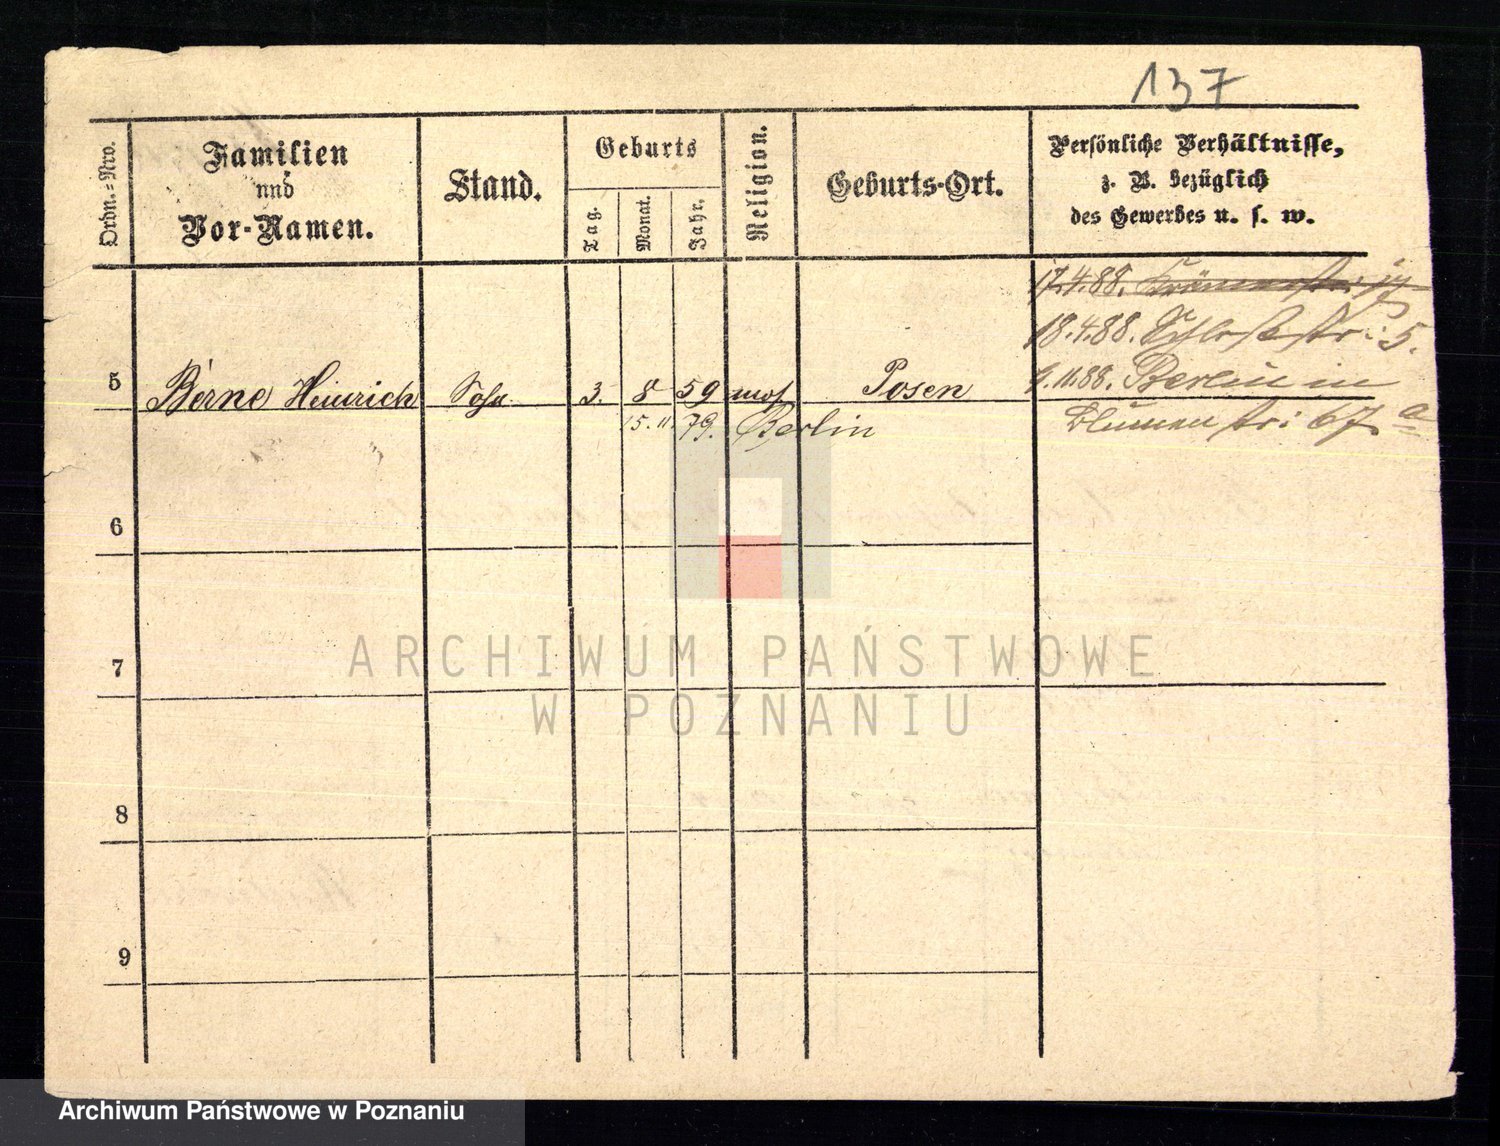 137
Ordn.=Nro.
Familien
und
Vor-Namen.
Stand.
Geburts
Tag.
Monat.
Jahr.
Religion.
Geburts-Ort.
Persönliche Verhältnisse,
z. B. bezüglich
des Gewerbes u. s. w.
17.4.88. Krämerstr:
18.4.88. Schlosstr: 5.
5 Berne Heinrich Sohn 3. 8 59 mos Posen 9.11.88. Berlin in
15. 11. 79. Berlin Blumenstr: 67 a
6
7
8
9
ARCHIWUM PAŃSTWOWE
W POZNANIU
Archiwum Państwowe w Poznaniu